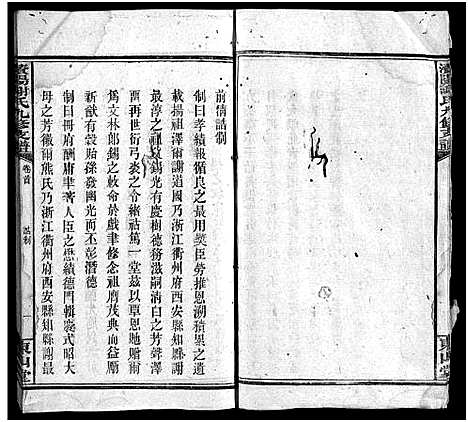 前清誥制
制曰考績報循良之最用奬臣勞推恩溯積累之
載揚祖澤爾謝道國乃浙江衢州府西安縣知縣謝
最淳之祖父錫光有慶樹德務滋嗣清白之芳聲澤
再世衍弓裘之令緒祜篤一堂茲以覃恩
爲文林郎錫之敕命於戲聿修念祖膺茂典而益勵
新猷有穀貽孫發幽光而丕彰潛德
制曰冊府酬庸聿著人臣之懋績德門輯慶式昭大
母之芳徽爾熊氏乃浙江衢州府西安縣知縣謝最
謝氏九修支譜
卷首
誥制
一
東山堂